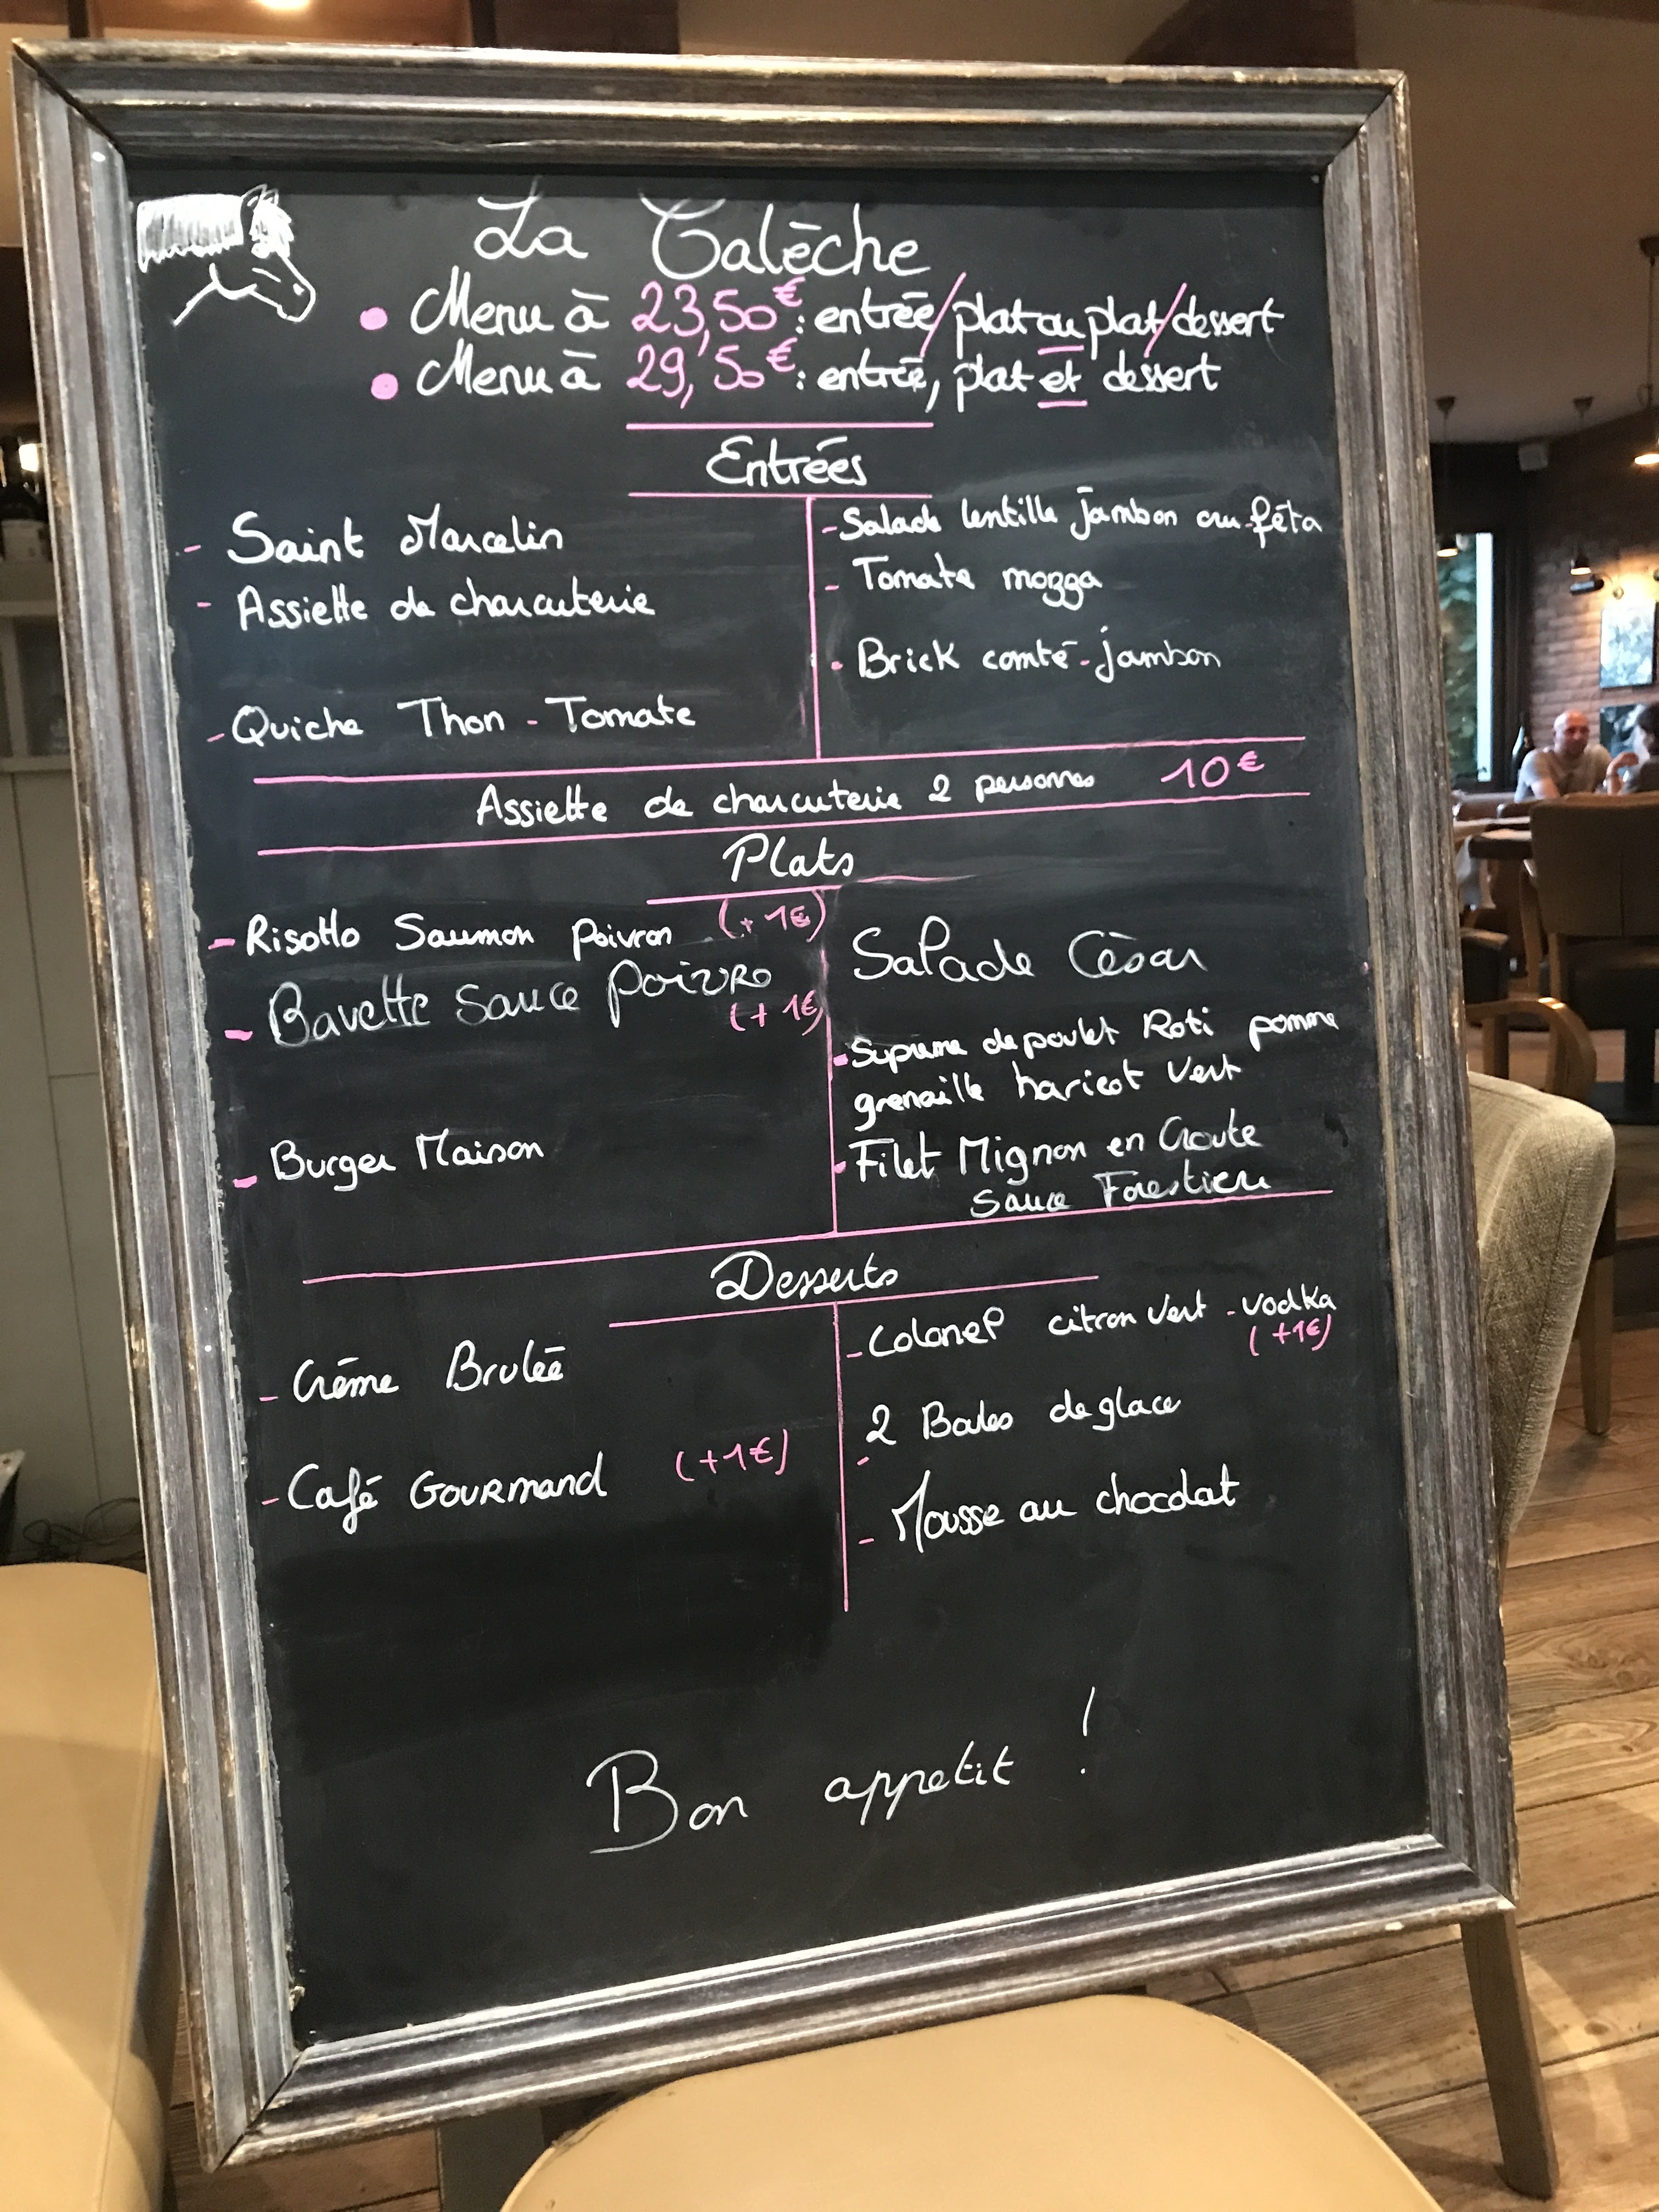 La Calèche
• Menu à 23,50€ : entrée/plat ou plat/dessert
• Menu à 29,50€ : entrée, plat et dessert
Entrées
- Saint Marcelin
- Assiette de charcuterie
- Quiche Thon - Tomate
- Salade lentille jambon cru-féta
- Tomate mozza
- Brick comté-jambon
Assiette de charcuterie 2 personnes 10€
Plats
- Risotto Saumon poivron (+1€)
- Bavette Sauce poivre
(+1€)
- Burger Maison
Salade César
- Supreme de poulet Roti pomme
grenaille haricot vert
- Filet Mignon en Croute
Sauce Forestiere
Desserts
- Crème Brulée
- Café Gourmand (+1€)
- Colonel citron vert - vodka
(+1€)
- 2 Boules de glace
- Mousse au chocolat
Bon appetit !